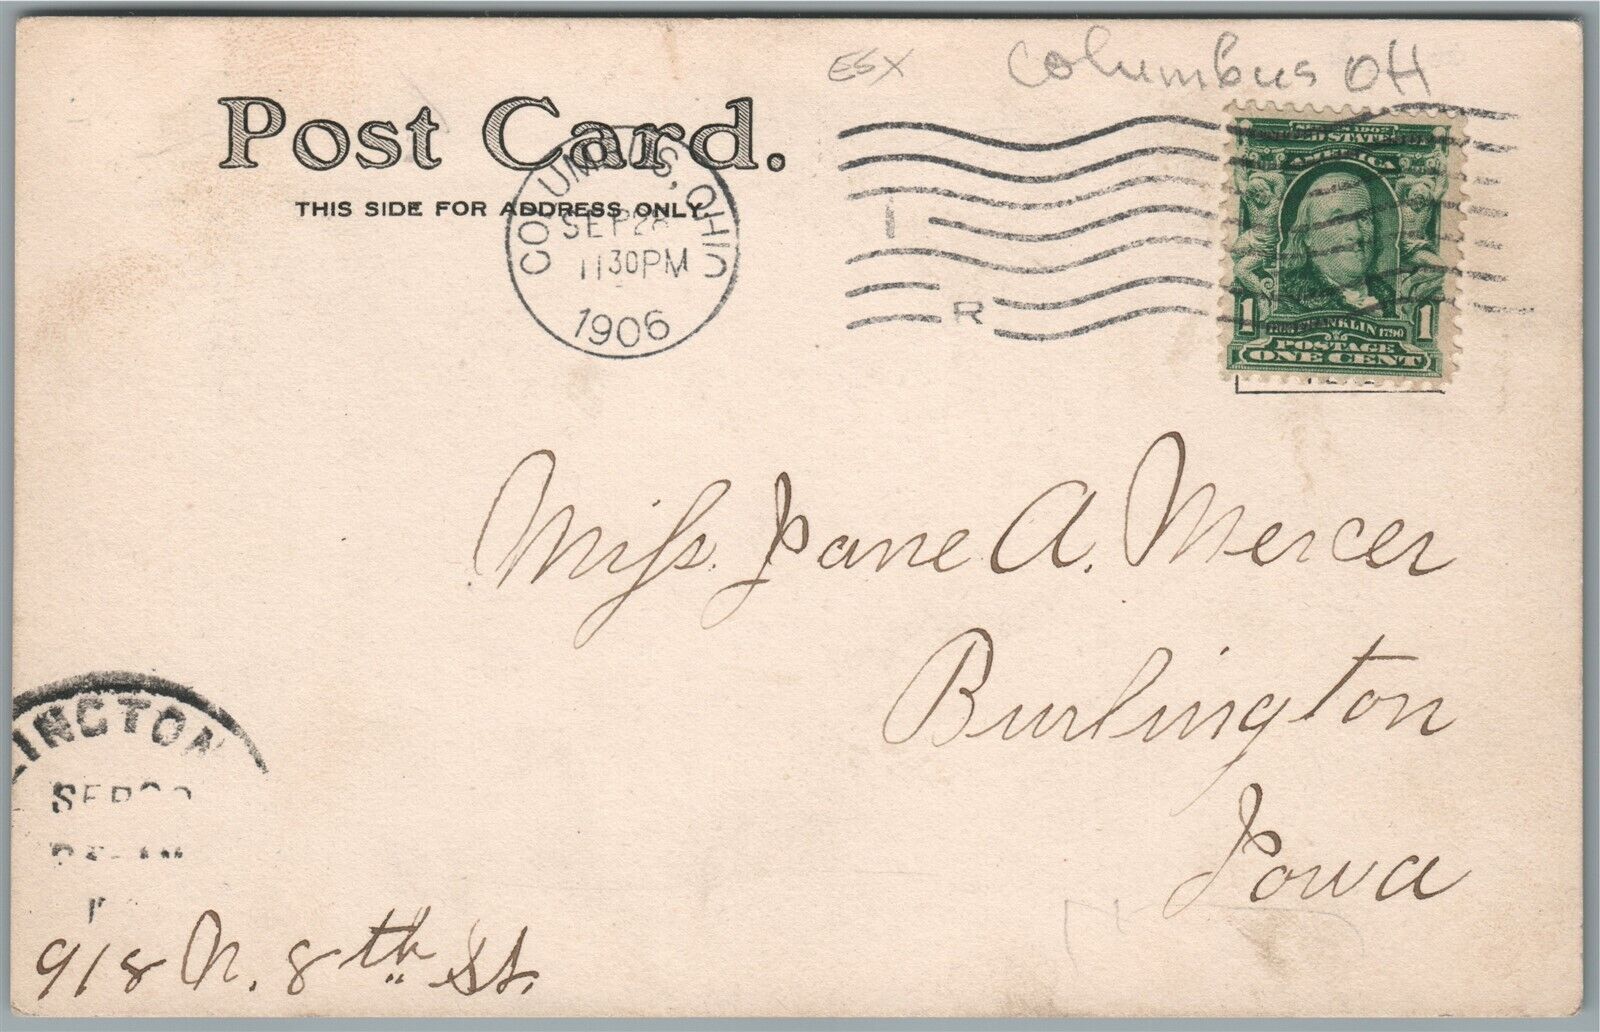 ESX Columbus OH
Post Card.
THIS SIDE FOR ADDRESS ONLY.
COLUMBUS, OHIO
SEP 28
1130PM
1906
R
SERIES 1902
UNITED STATES OF
AMERICA
1 FRANKLIN 1790 1
POSTAGE
ONE CENT
Miss. Jane A. Mercer
Burlington
Iowa
LINGTON
SEP
918 N. 8th St.